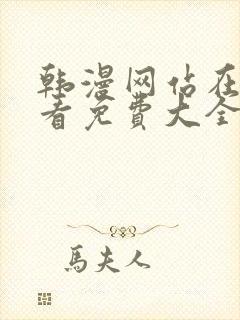 韩漫网站在
看免费大全
馬夫人